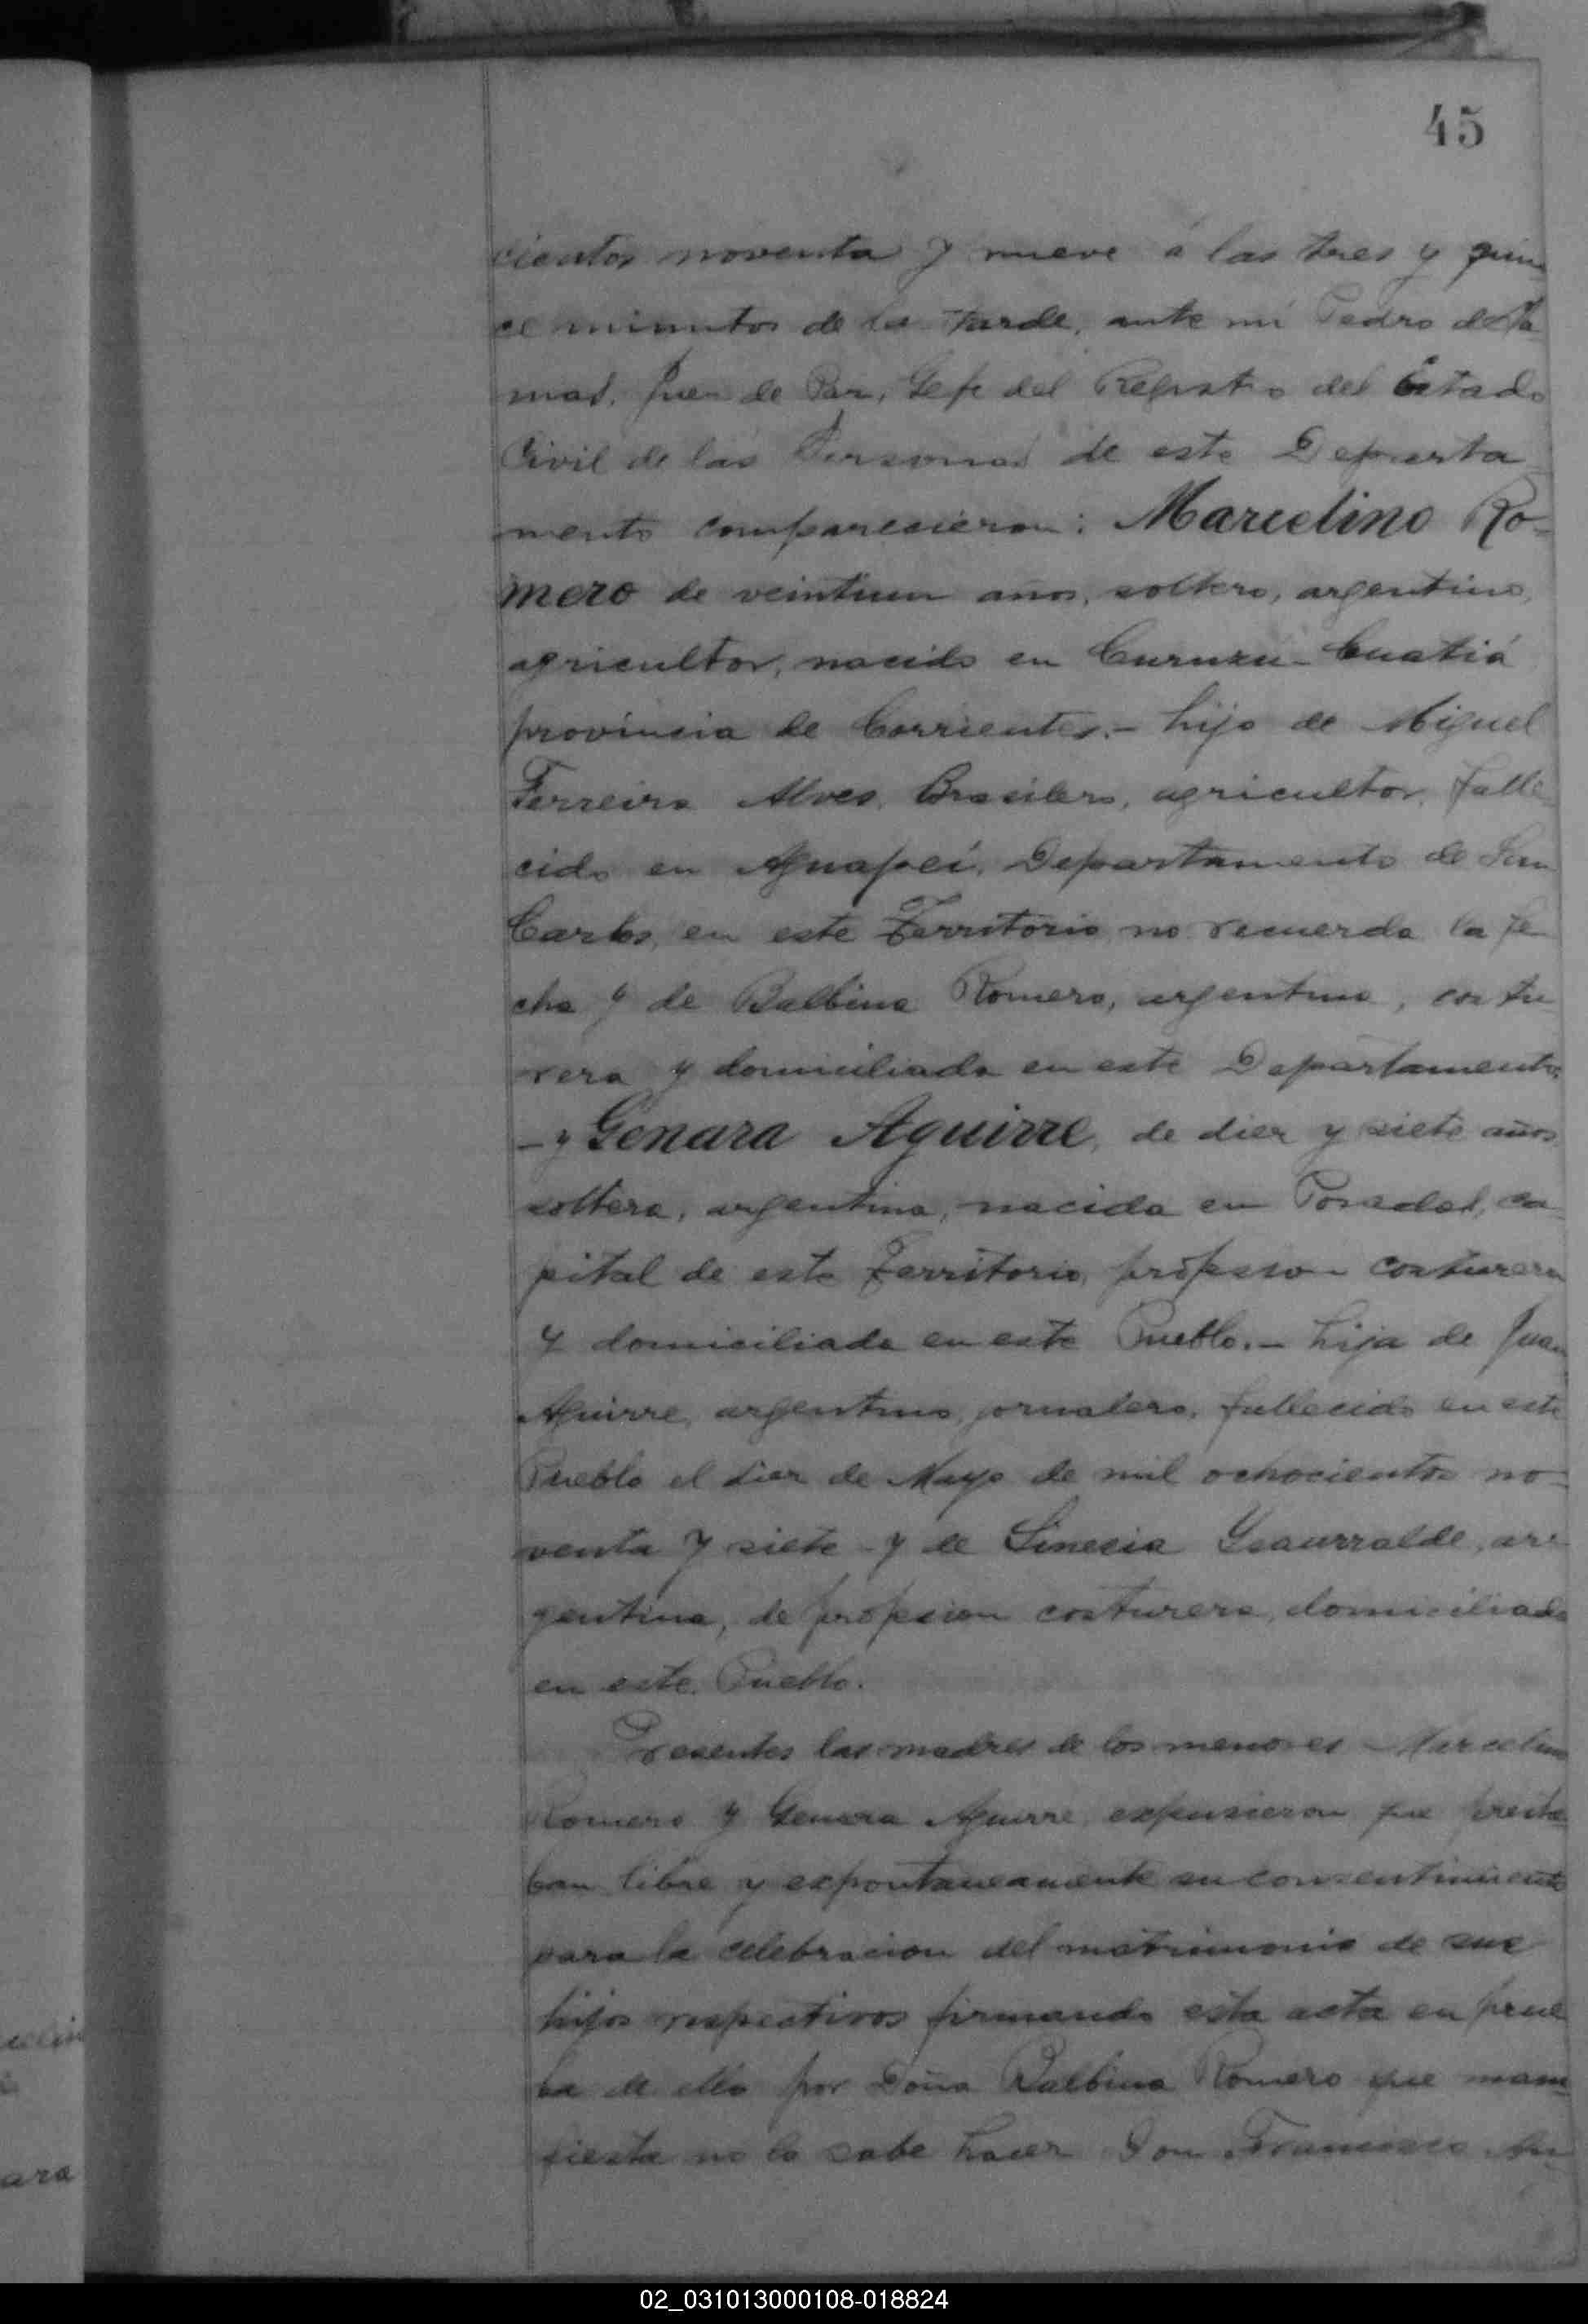 45
cientos noventa y nueve á las tres y quin
ce minutos de la tarde, ante mí Pedro de
mas, Juez de Paz, Gefe del Registro del Estado
Civil de las Personas de este Departa
mento comparecieron: Marcelino Ro-
mero de veintiun años, soltero, argentino,
agricultor, nacido en Curuzú-Cuatiá
provincia de Corrientes.- hijo de Miguel
Ferreira Alves, Brasilero, agricultor, falle
cido en Aguapeí, Departamento de San
Carlos, en este Territorio no recuerda la fe
cha y de Balbina Romero, argentina, costu
rera y domiciliada en este Departamento,
- y Genara Aguirre, de diez y siete años
soltera, argentina, nacida en Posadas, ca
pital de este Territorio, profesion costurera
y domiciliada en este Pueblo.- hija de Juan
Aguirre, argentino, jornalero, fallecido en este
Pueblo el diez de Mayo de mil ochocientos no-
venta y siete - y de Sinesia Ysaurralde, ar-
gentina, de profesion costurera, domiciliada
en este Pueblo.
Presentes las madres de los menores Marcelino
Romero y Genara Aguirre, expusieron que presta
ban libre y expontaneamente su consentimiento
para la celebracion del matrimonio de sus
hijos respectivos firmando esta acta en prue
ba de ello por Doña Balbina Romero que mani
fiesta no lo sabe hacer Don Francisco
elin
ara
02_031013000108-018824